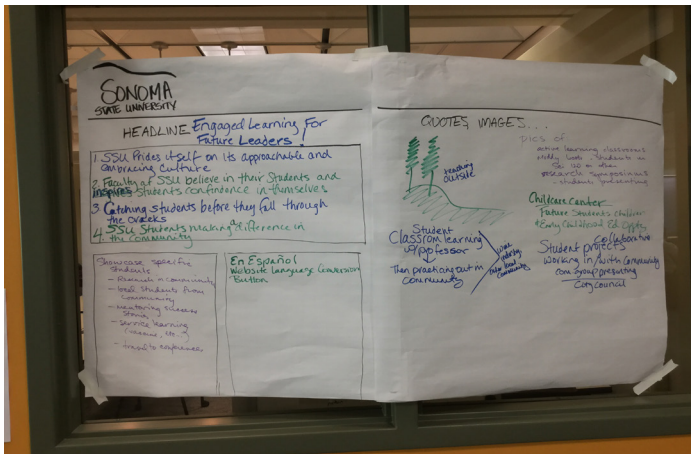 SONOMA
STATE UNIVERSITY
HEADLINE Engaged Learning For
Future Leaders!
1. SSU Prides itself on its approachable and
embracing culture
2. Faculty of SSU believe in their Students and
inspires Students confindence in themselves
3. Catching students before they fall through
the cracks
4. SSU Students making a difference in
the community
Showcase specific
Students
- Research in community
- local students from
community
- mentoring success
stories
- service learning
- travel to conferences
En Español
Website Language Conversion
Button
QUOTES, IMAGES...
pics of
active learning classrooms
students in
Sci 100 or other
research symposiums
- students presenting
teaching
outside
Student
Classrom learning
w/professor
Then practicing out in
community
work
local
community
Childcare center
Future Students children
+ Early Childhood Ed
Collaborative
Student projects
working in/with community
group presenting
City council